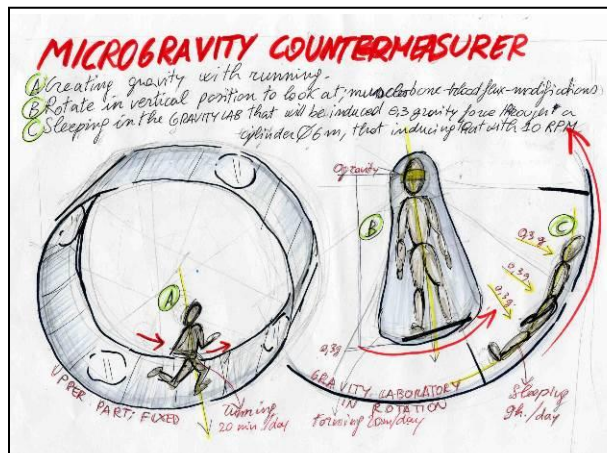 MICROGRAVITY COUNTERMEASURER
A Creating gravity with running.
B Rotate in vertical position to look at; muscle bone blood flux modifications
C Sleeping in the GRAVITY LAB that will be induced 0,3 gravity force through a
cylinder Ø 6m, that inducing that with 10 RPM
0gravity
B
C
0,3g
0,3g
0,3g
A
0,3g
UPPER PART: FIXED
running
20 min/day
GRAVITY LABORATORY
IN ROTATION
20m/day
Sleeping
9h./day